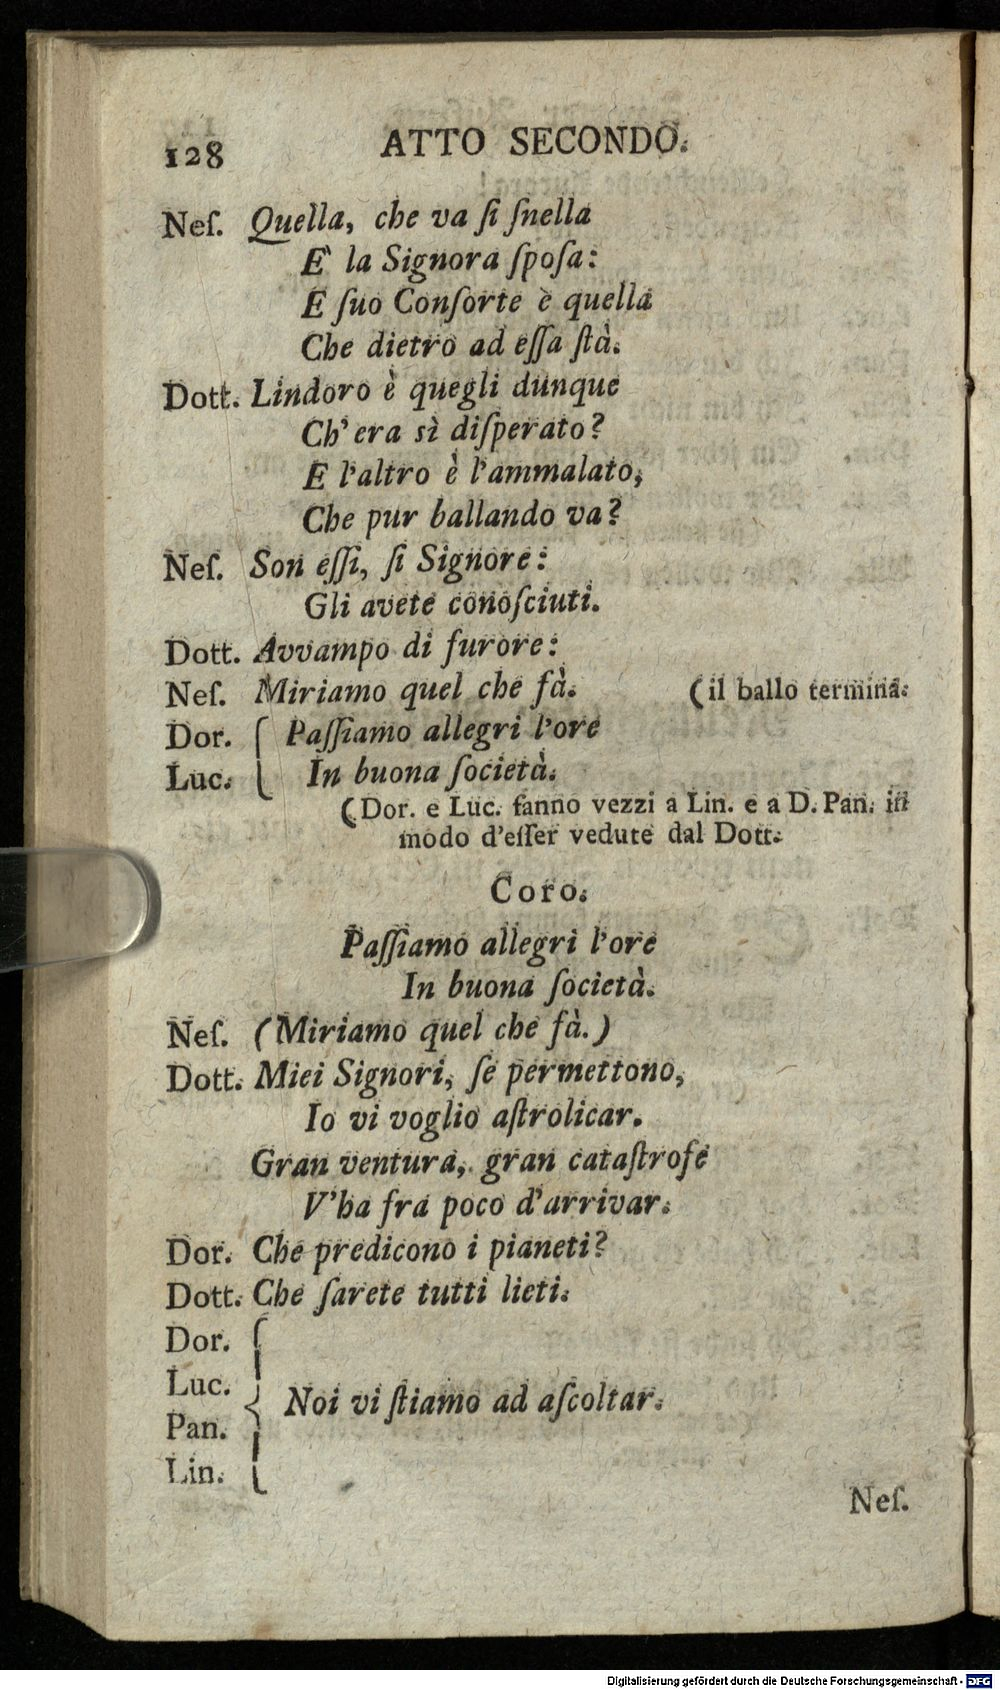 128 ATTO SECONDO.
Neſ. Quella, che va ſi ſnella
E' la Signora ſpoſa:
E ſuo Conſorte è quella
Che dietro ad eſſa ſtà.
Dott. Lindoro è quegli dunque
Ch'era sì diſperato?
E l'altro è l'ammalato,
Che pur ballando va?
Neſ. Son eſſi, ſi Signore:
Gli avete conoſciuti.
Dott. Avvampo di furore:
Neſ. Miriamo quel che fà. (il ballo termina.
Dor. { Paſſiamo allegri l'ore
Luc. { In buona ſocietà.
(Dor. e Luc. fanno vezzi a Lin. e a D. Pan. in
modo d'eſſer vedute dal Dott.
Coro.
Paſſiamo allegri l'ore
In buona ſocietà.
Neſ. (Miriamo quel che fà.)
Dott. Miei Signori, ſe permettono,
Io vi voglio aſtrolicar.
Gran ventura, gran cataſtrofe
V'ha fra poco d'arrivar.
Dor. Che predicono i pianeti?
Dott. Che ſarete tutti lieti.
Dor.
Luc.
Pan.
Lin.
{ Noi vi ſtiamo ad aſcoltar.
Neſ.
Digitalisierung gefördert durch die Deutsche Forschungsgemeinschaft - DFG